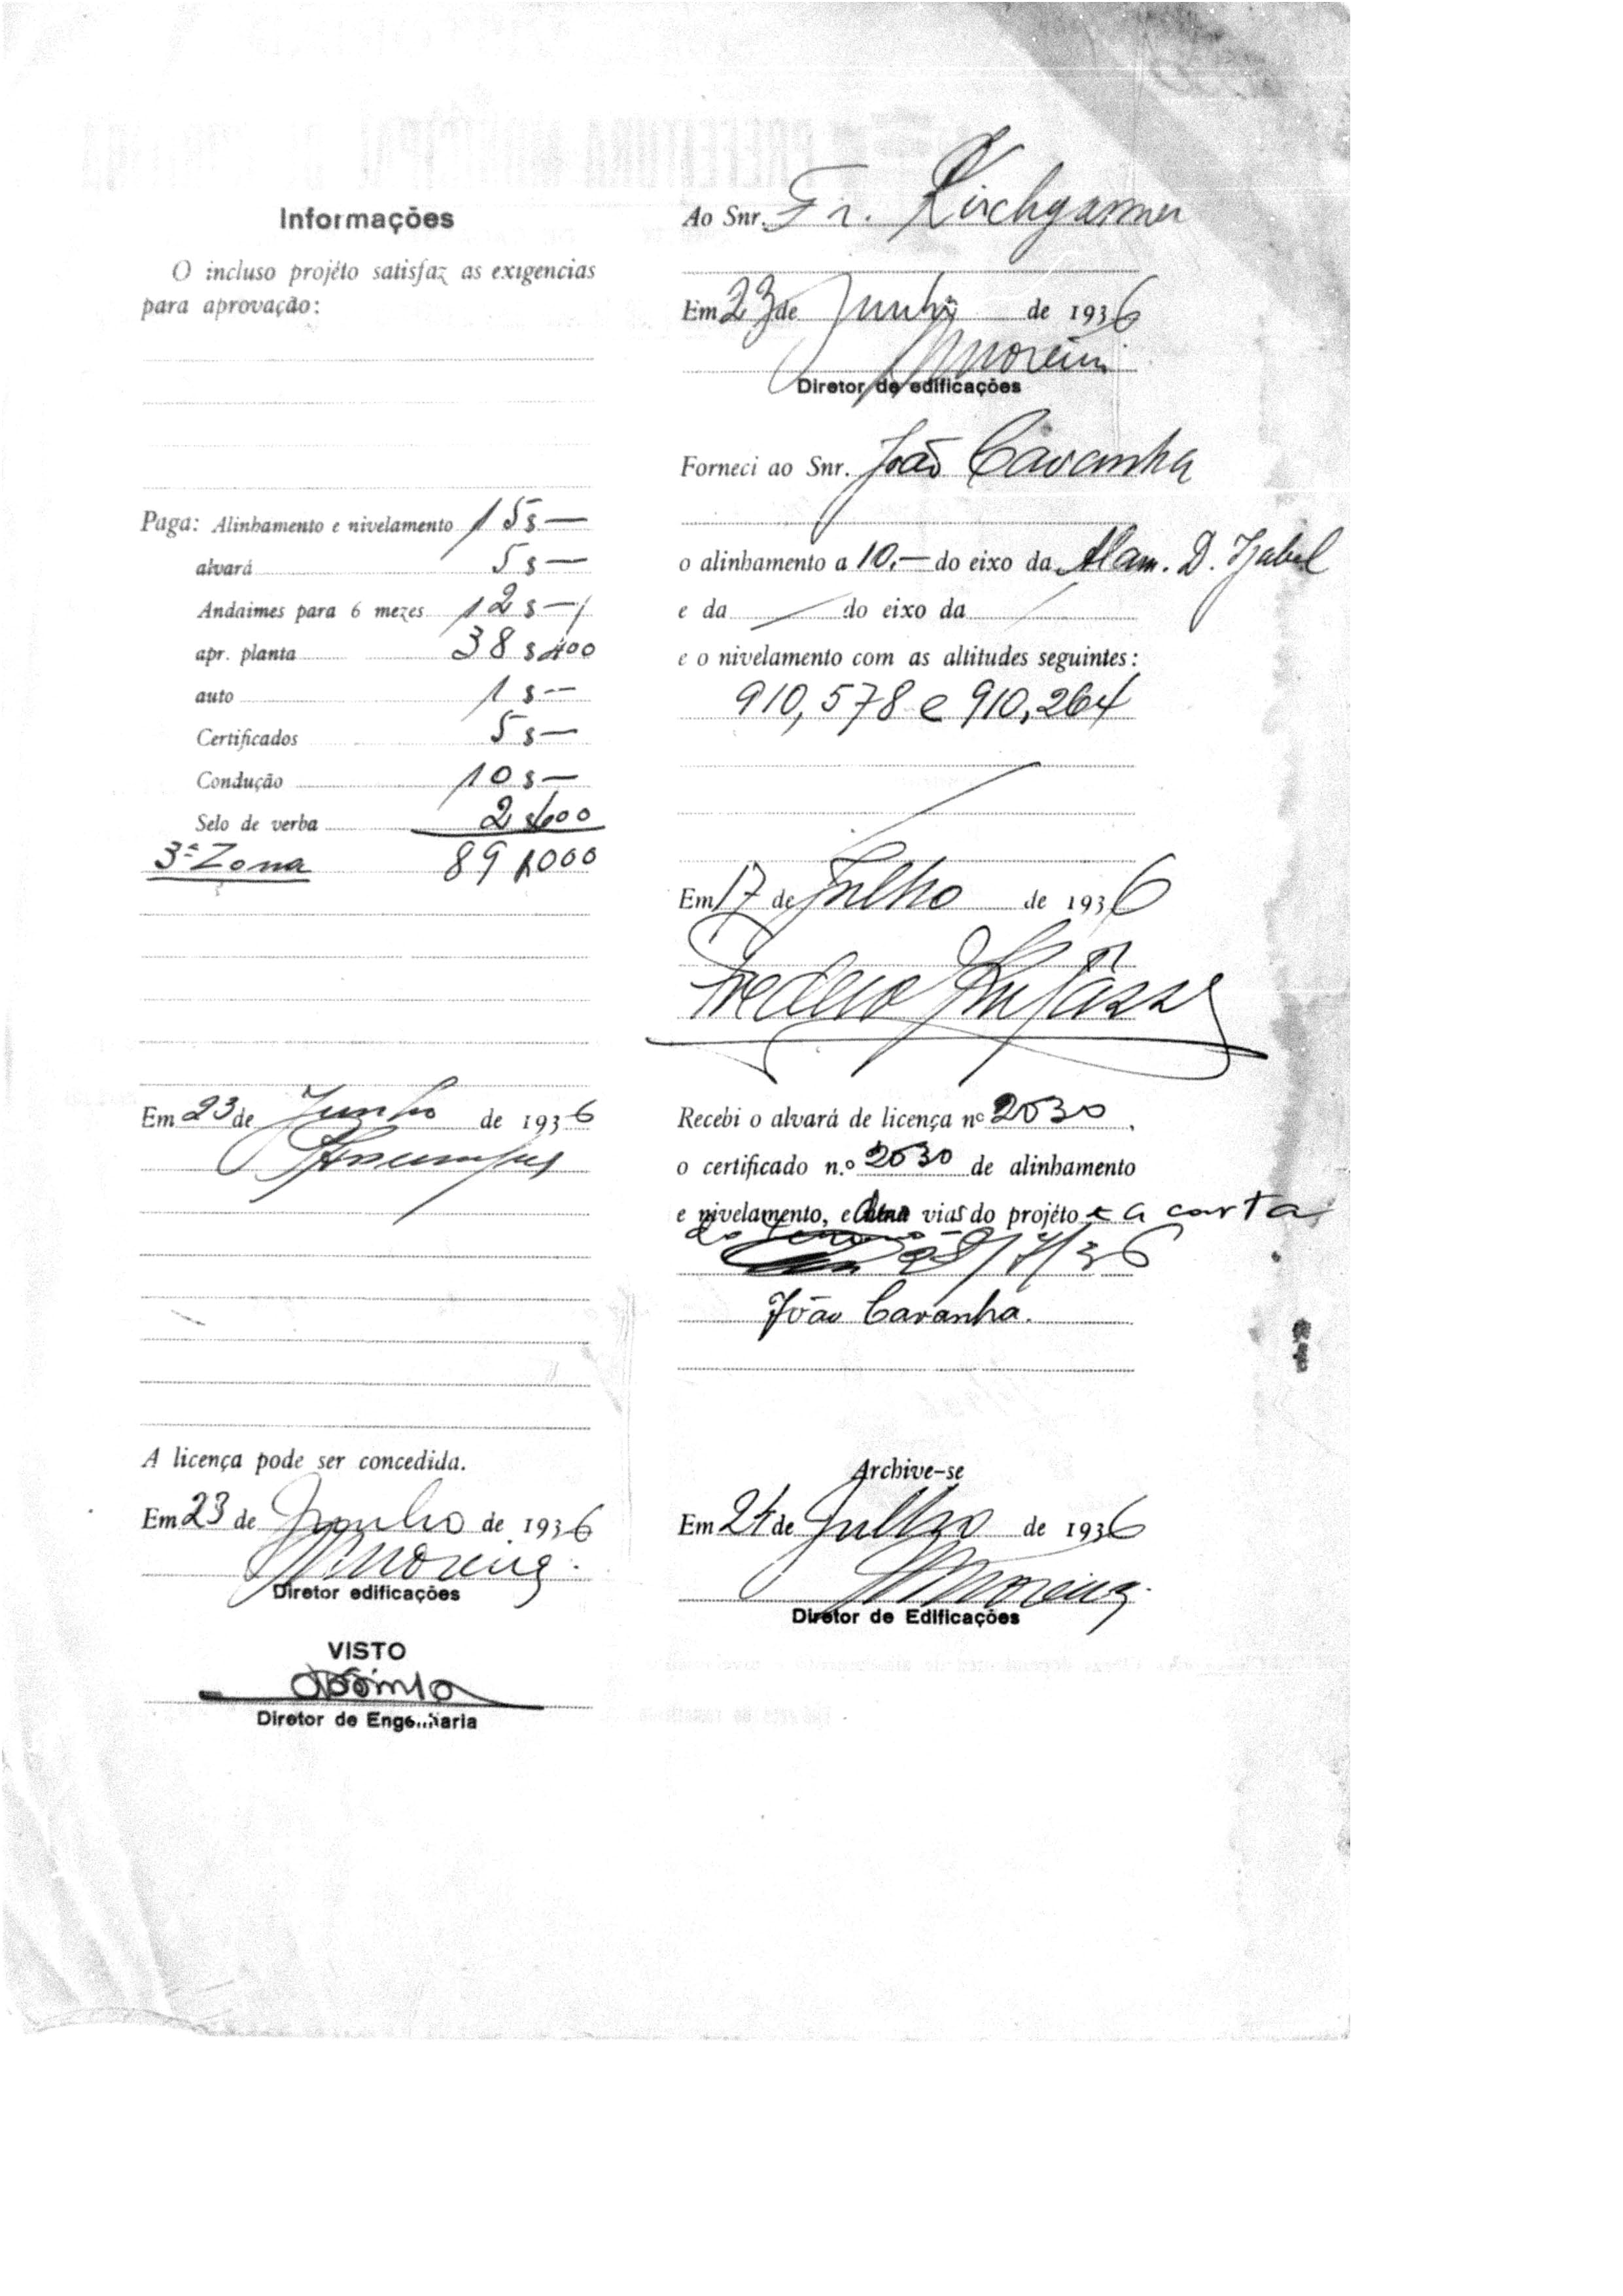 Informações
O incluso projéto satisfaz as exigencias
para aprovação:
Paga: Alinhamento e nivelamento 15$—
alvará 5$—
Andaimes para 6 mezes 12$—
apr. planta 38$400
auto 1$—
Certificados 5$—
Condução 10$—
Selo de verba 2$600
3ª Zona 89$000
Em 23 de Junho de 1936
A licença pode ser concedida.
Em 23 de Junho de 1936
Moreira
Diretor edificações
VISTO
Diretor de Engenharia
Ao Snr. Fr. Kirchgässner
Em 23 de Junho de 1936
Moreira
Diretor de edificações
Forneci ao Snr. João Cavanha
o alinhamento a 10.— do eixo da Alam. D. Izabel
e da — do eixo da
e o nivelamento com as altitudes seguintes:
910,578 e 910,264
Em 17 de Julho de 1936
Recebi o alvará de licença nº 2030,
o certificado n.º 2030 de alinhamento
e nivelamento, e vias do projéto e a carta
do 28/7/36
João Cavanha.
Archive-se
Em 24 de Julho de 1936
Moreira
Diretor de Edificações